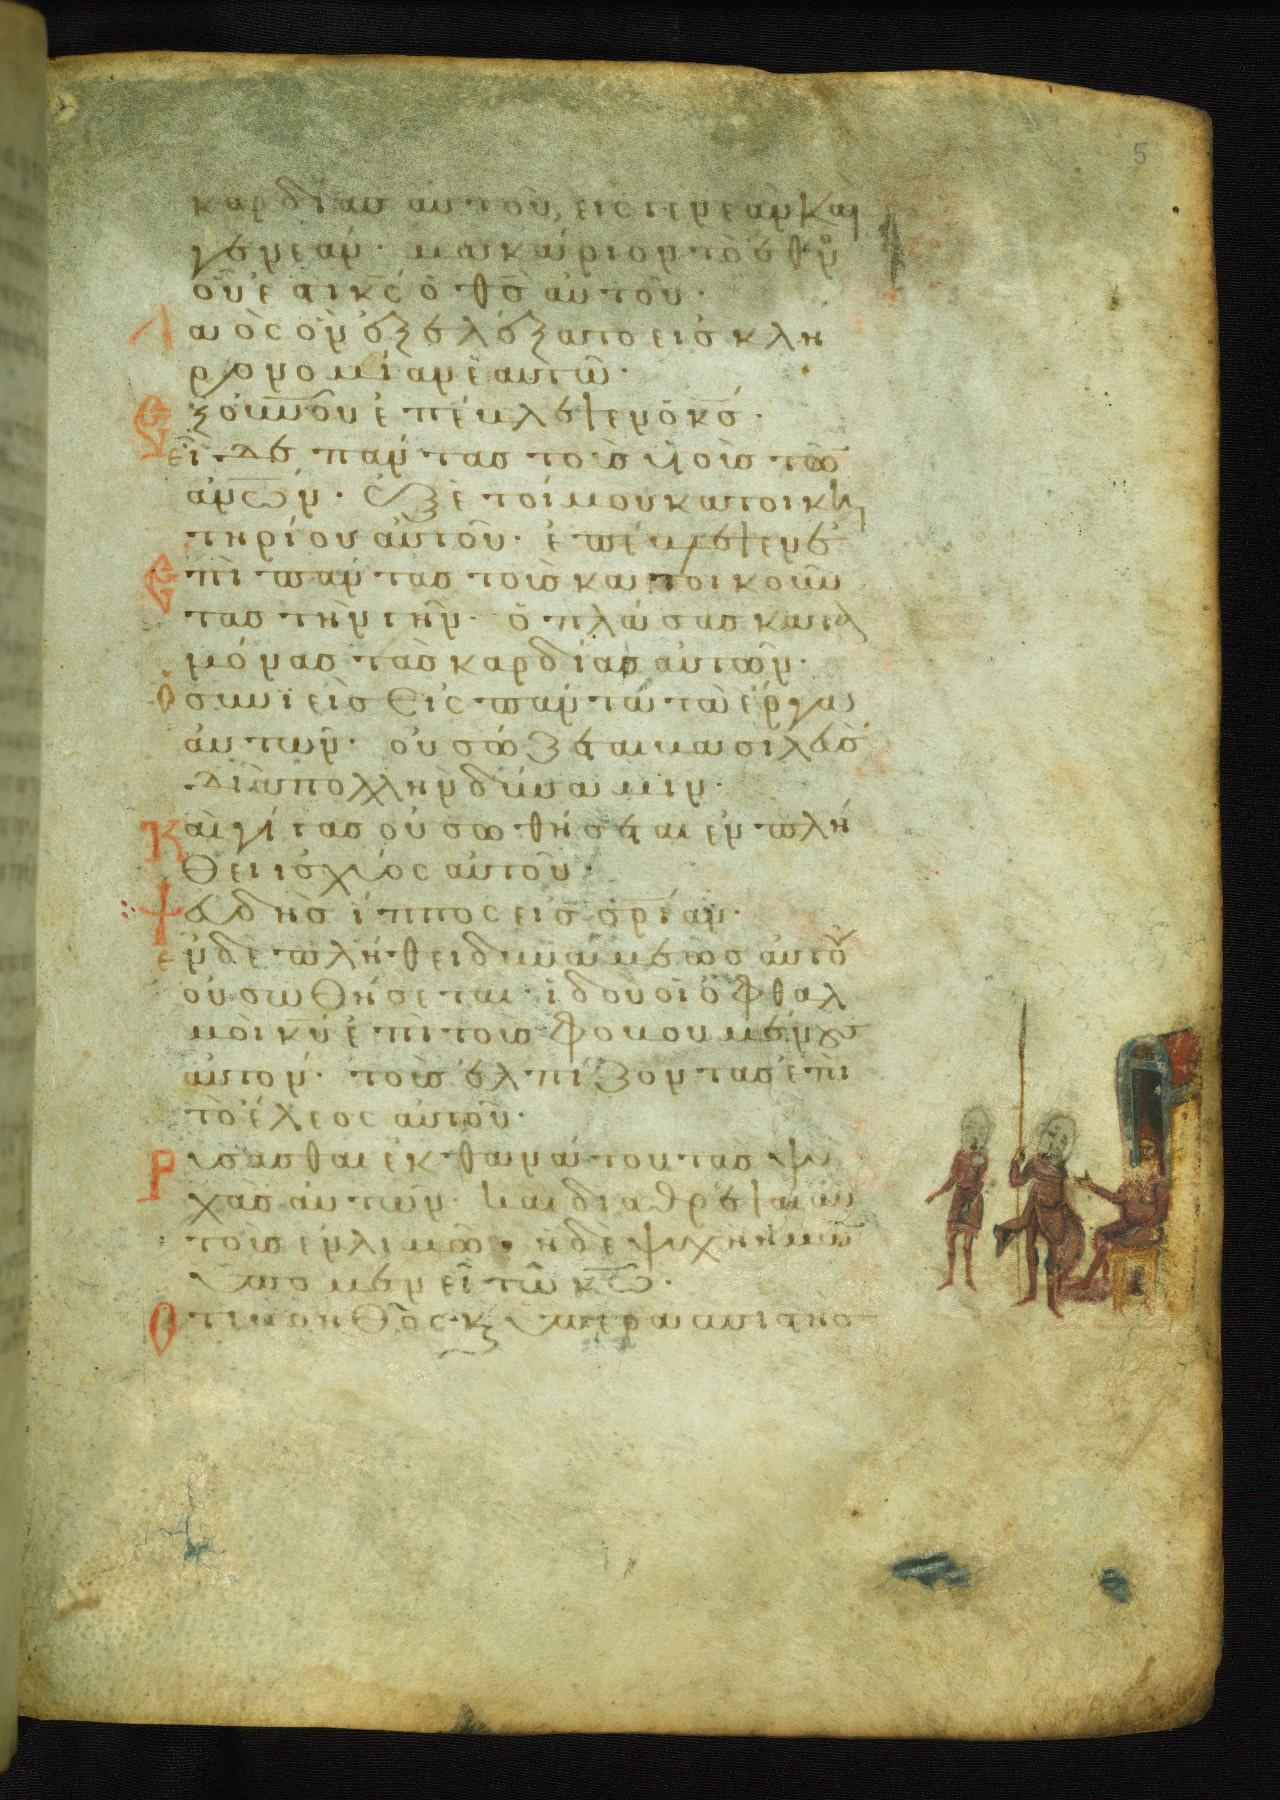 5
καρδίας αὐτοῦ, εἰς γενεὰν καὶ
γενεάν· μακάριον τὸ ἔθνος
οὗ ἐστι κς ὁ θς αὐτοῦ·
Λαὸς ὃν ἐξελέξατο εἰς κλη
ρονομίαν ἑαυτῶ·
Ἐξ οὐνοῦ ἐπέβλεψεν ὁ κς·
εἶδε πάντας τοὺς υἱοὺς τῶν
ἀνων· ἐξ ἑτοίμου κατοικη
τηρίου αὐτοῦ· ἐπέβλεψεν ἐ
Ἐπὶ πάντας τοὺς κατοικοῦν
τας τὴν γῆν· ὁ πλάσας κατὰ
μόνας τὰς καρδίας αὐτῶν·
ὁ συνιεὶς εἰς πάντα τὰ ἔργα
αὐτῶν· οὐ σώζεται βασιλεὺς
διὰ πολλὴν δύναμιν·
Καὶ γίγας οὐ σωθήσεται ἐν πλή
θει ἰσχύος αὐτοῦ·
Ψευδὴς ἵππος εἰς σρίαν·
ἐν δὲ πλήθει δυνάμεως αὐτοῦ
οὐ σωθήσεται· ἰδοὺ οἱ ὀφθαλ
μοὶ κυ ἐπὶ τοὺς φοβουμένους
αὐτόν· τοὺς ἐλπίζοντας ἐπὶ
τὸ ἔλεος αὐτοῦ·
Ῥύσασθαι ἐκ θανάτου τὰς ψυ
χὰς αὐτῶν· καὶ διαθρέψαι αὐ
τοὺς ἐν λιμῶ· ἡ δὲ ψυχὴ ἡμῶν
ὑπομενεῖ τῶ κω·
Ὅτι βοηθὸς κ ὑπερασπιστὴς